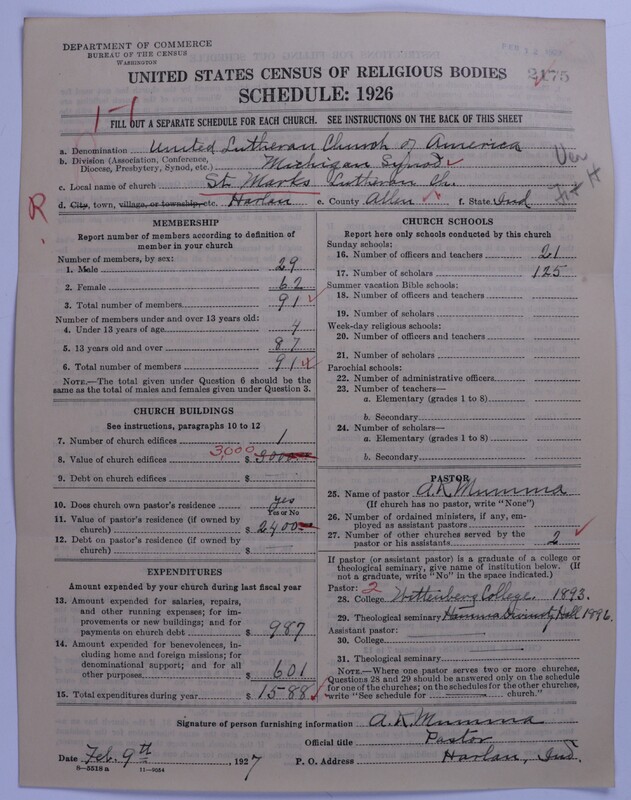 DEPARTMENT OF COMMERCE
BUREAU OF THE CENSUS
WASHINGTON
UNITED STATES CENSUS OF RELIGIOUS BODIES
2175
SCHEDULE: 1926
1-1
FILL OUT A SEPARATE SCHEDULE FOR EACH CHURCH. SEE INSTRUCTIONS ON THE BACK OF THIS SHEET
a. Denomination United Lutheran Church of America
b. Division (Association, Conference, Diocese, Presbytery, Synod, etc.) Michigan Synod
c. Local name of church St. Marks Lutheran Ch.
d. City, town, village, or township, etc. Harlan e. County Allen f. State Ind
R.
MEMBERSHIP
Report number of members according to definition of member in your church
Number of members, by sex:
1. Male 29
2. Female 62
3. Total number of members 91
Number of members under and over 13 years old:
4. Under 13 years of age 4
5. 13 years old and over 87
6. Total number of members 91
NOTE.—The total given under Question 6 should be the same as the total of males and females given under Question 3.
CHURCH BUILDINGS
See instructions, paragraphs 10 to 12
7. Number of church edifices 1
3,000
8. Value of church edifices $ 3000
9. Debt on church edifices $
10. Does church own pastor's residence yes
Yes or No
11. Value of pastor's residence (if owned by church) $ 2400
12. Debt on pastor's residence (if owned by church) $
EXPENDITURES
Amount expended by your church during last fiscal year
13. Amount expended for salaries, repairs, and other running expenses; for improvements or new buildings; and for payments on church debt $ 987
14. Amount expended for benevolences, including home and foreign missions; for denominational support; and for all other purposes $ 601
15. Total expenditures during year $ 1588
CHURCH SCHOOLS
Report here only schools conducted by this church
Sunday schools:
16. Number of officers and teachers 21
17. Number of scholars 125
Summer vacation Bible schools:
18. Number of officers and teachers
19. Number of scholars
Week-day religious schools:
20. Number of officers and teachers
21. Number of scholars
Parochial schools:
22. Number of administrative officers
23. Number of teachers—
a. Elementary (grades 1 to 8)
b. Secondary
24. Number of scholars—
a. Elementary (grades 1 to 8)
b. Secondary
PASTOR
25. Name of pastor A. K. Mumma
(If church has no pastor, write "None")
26. Number of ordained ministers, if any, employed as assistant pastors
27. Number of other churches served by the pastor or his assistants 2
If pastor (or assistant pastor) is a graduate of a college or theological seminary, give name of institution below. (If not a graduate, write "No" in the space indicated.)
Pastor: 2
28. College Wittenberg College. 1893.
29. Theological seminary Hamma Divinity Hall 1896.
Assistant pastor:
30. College
31. Theological seminary
NOTE.—Where one pastor serves two or more churches, Questions 28 and 29 should be answered only on the schedule for one of the churches; on the schedules for the other churches, write "See schedule for church."
Signature of person furnishing information A. K. Mumma
Official title Pastor
Date Feb. 9th, 1927 P. O. Address Harlan, Ind.
8-5518 a 11-9554